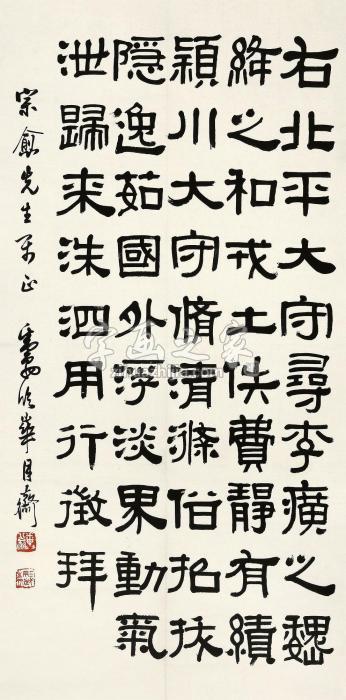 右北平大守尋李廣之魏
絳之和戎土佚費靜有績
穎川大守脩清滌俗招拔
隱逸茹國外浮淡果動氣
泄歸来洙泗用行徵拜
先生 正
字画之家